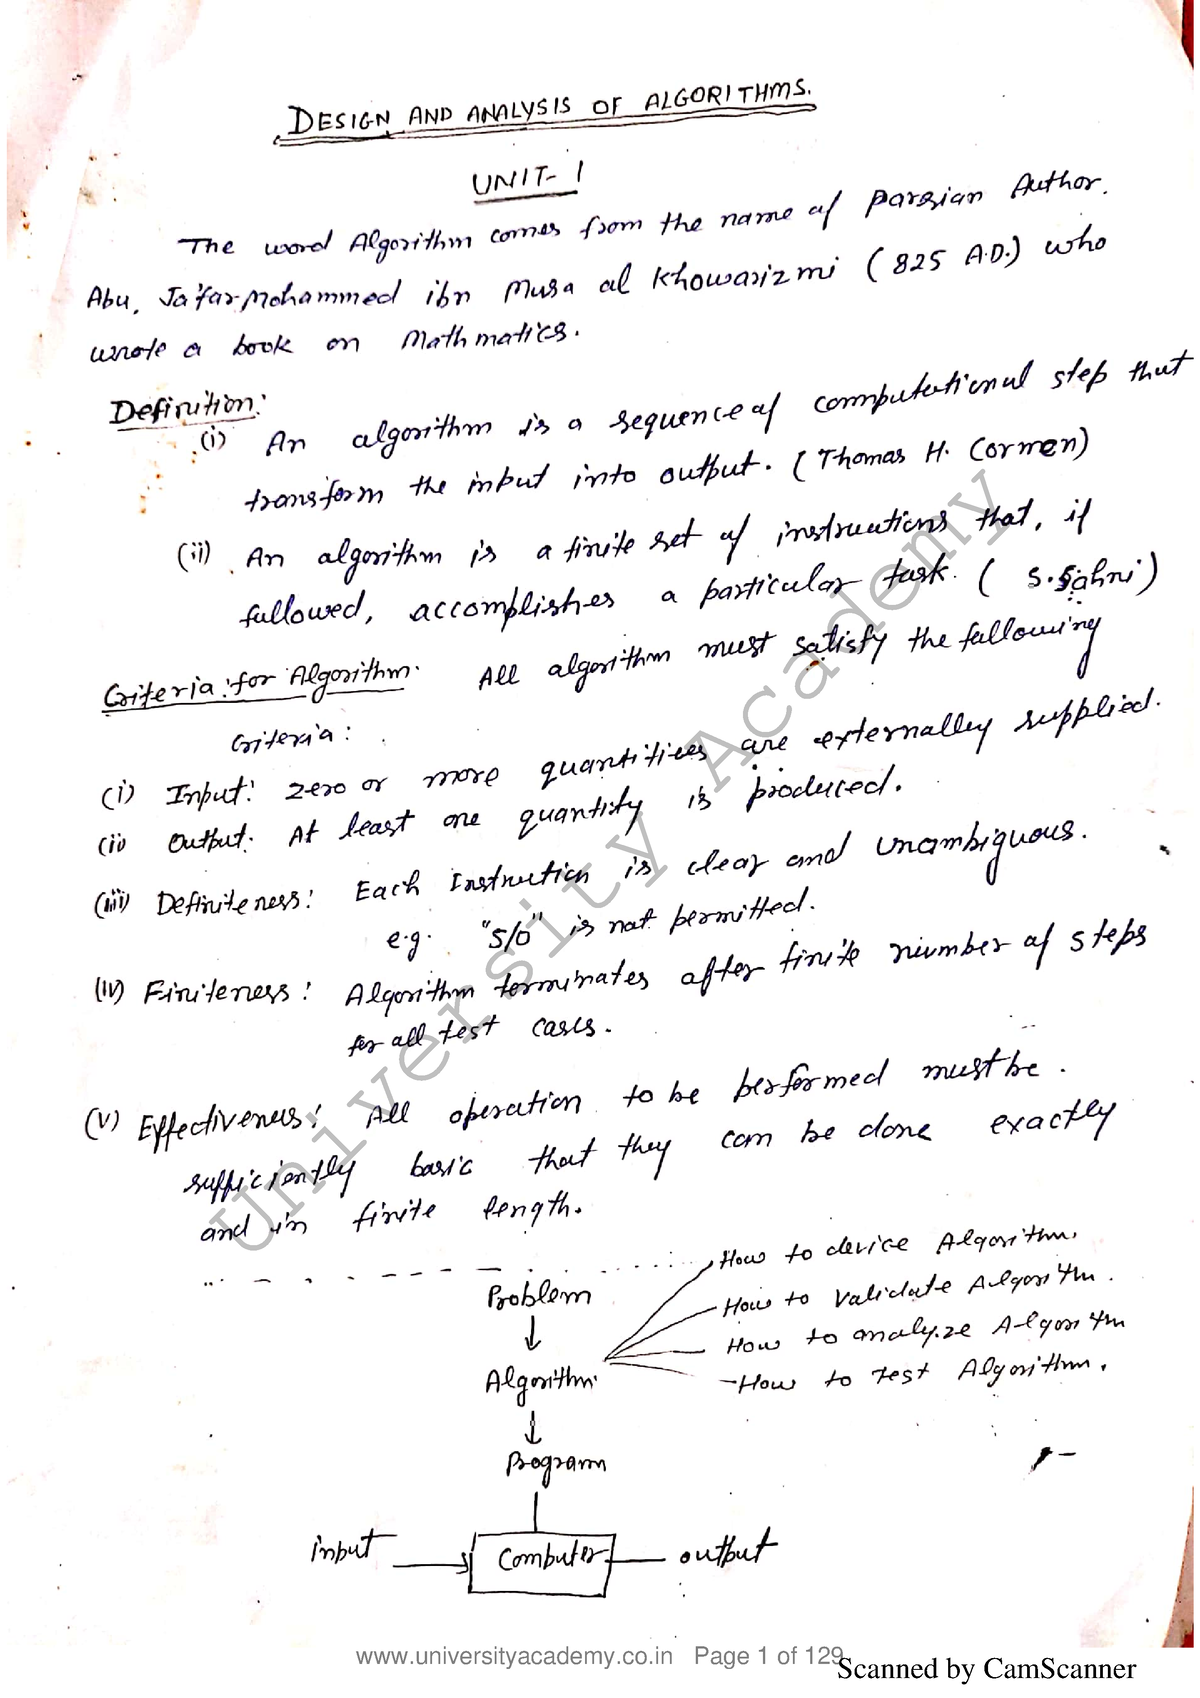 DESIGN AND ANALYSIS OF ALGORITHMS.
UNIT- 1
The word Algorithm comes from the name of Parsian Author.
Abu, Ja'far Mohammed ibn Musa al Khowarizmi ( 825 A.D.) who
wrote a book on Mathmatics.
Definition:
(i) An algorithm is a sequence of computational step that
transform the input into output. ( Thomas H. Cormen)
(ii) An algorithm is a finite set of instructions that, if
followed, accomplishes a particular task. ( S. Sahni )
Criteria for Algorithm. All algorithm must satisfy the following
Criteria :
(i) Input: zero or more quantities are externally supplied.
(ii) Output: At least one quantity is produced.
(iii) Definiteness: Each Instruction is clear and unambiguous.
e.g. "5/0" is not permitted.
(iv) Finiteness: Algorithm terminates after finite number of steps
for all test cases.
(v) Effectiveness: All operation to be performed must be
sufficiently basic that they can be done exactly
and in finite length.
Problem
How to device Algorithm.
How to validate Algorithm.
How to analyze Algorithm
Algorithm
How to test Algorithm.
Program
input
Computer
output
University Academy
www.universityacademy.co.in Page 1 of 129
Scanned by CamScanner